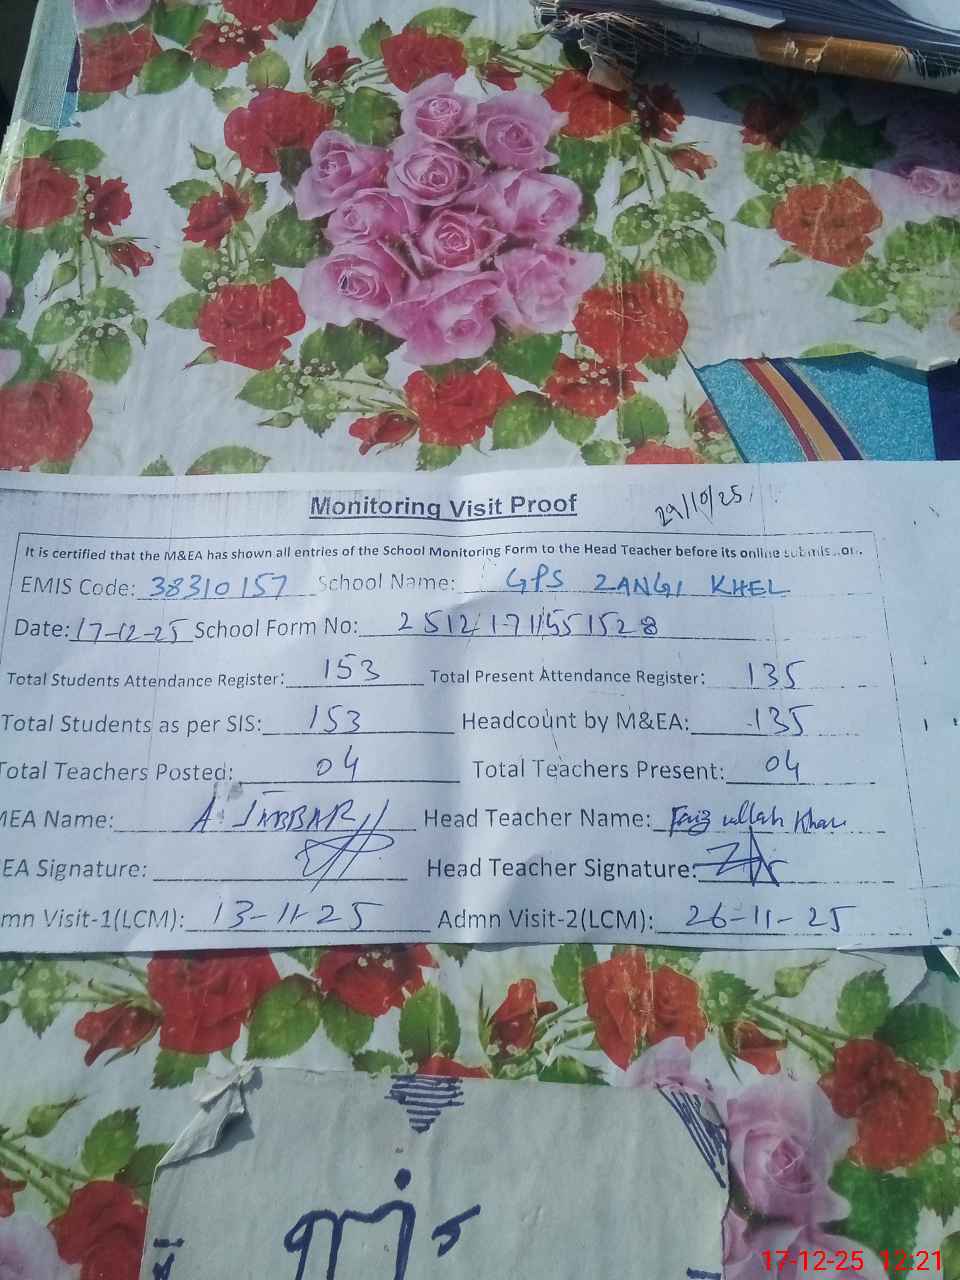 Monitoring Visit Proof
29/10/25
It is certified that the M&EA has shown all entries of the School Monitoring Form to the Head Teacher before its online submis..on.
EMIS Code: 38310157 School Name: GPS ZANGI KHEL
Date: 17-12-25 School Form No:
Total Students Attendance Register: 153 Total Present Attendance Register: 135
Total Students as per SIS: 153 Headcount by M&EA: 135
Total Teachers Posted: 04 Total Teachers Present: 04
MEA Name: A. JABBAR Head Teacher Name: Faiz ullah Khan
EA Signature: Head Teacher Signature:
mn Visit-1(LCM): 13-11-25 Admn Visit-2(LCM): 26-11-25
17-12-25 12:21